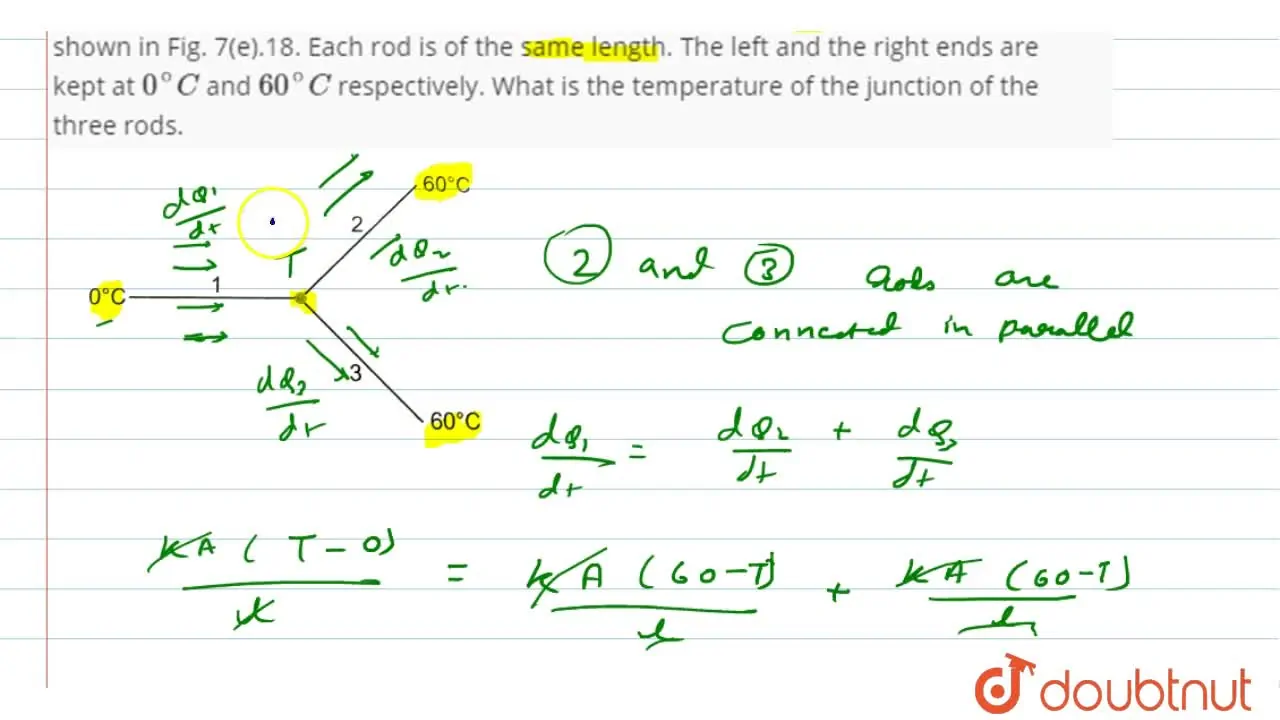 shown in Fig. 7(e).18. Each rod is of the same length. The left and the right ends are
kept at 0°C and 60°C respectively. What is the temperature of the junction of the
three rods.
60°C
dQ1/dt
2
T
dQ2/dt
1
0°C
3
dQ3/dt
60°C
2 and 3 Rods are
connected in parallel
dQ1/dt = dQ2/dt + dQ3/dt
KA (T-0)/l = KA (60-T)/l + KA (60-T)/l
doubtnut